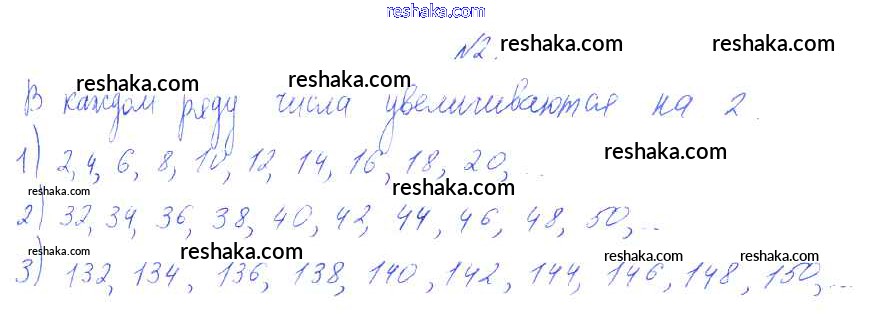 reshaka.com
№2. reshaka.com reshaka.com
reshaka.com reshaka.com
В каждом ряду числа увеличиваются на 2.
1) 2, 4, 6, 8, 10, 12, 14, 16, 18, 20, ...
reshaka.com
reshaka.com reshaka.com
2) 32, 34, 36, 38, 40, 42, 44, 46, 48, 50, ...
reshaka.com reshaka.com reshaka.com reshaka.com
3) 132, 134, 136, 138, 140, 142, 144, 146, 148, 150, ...